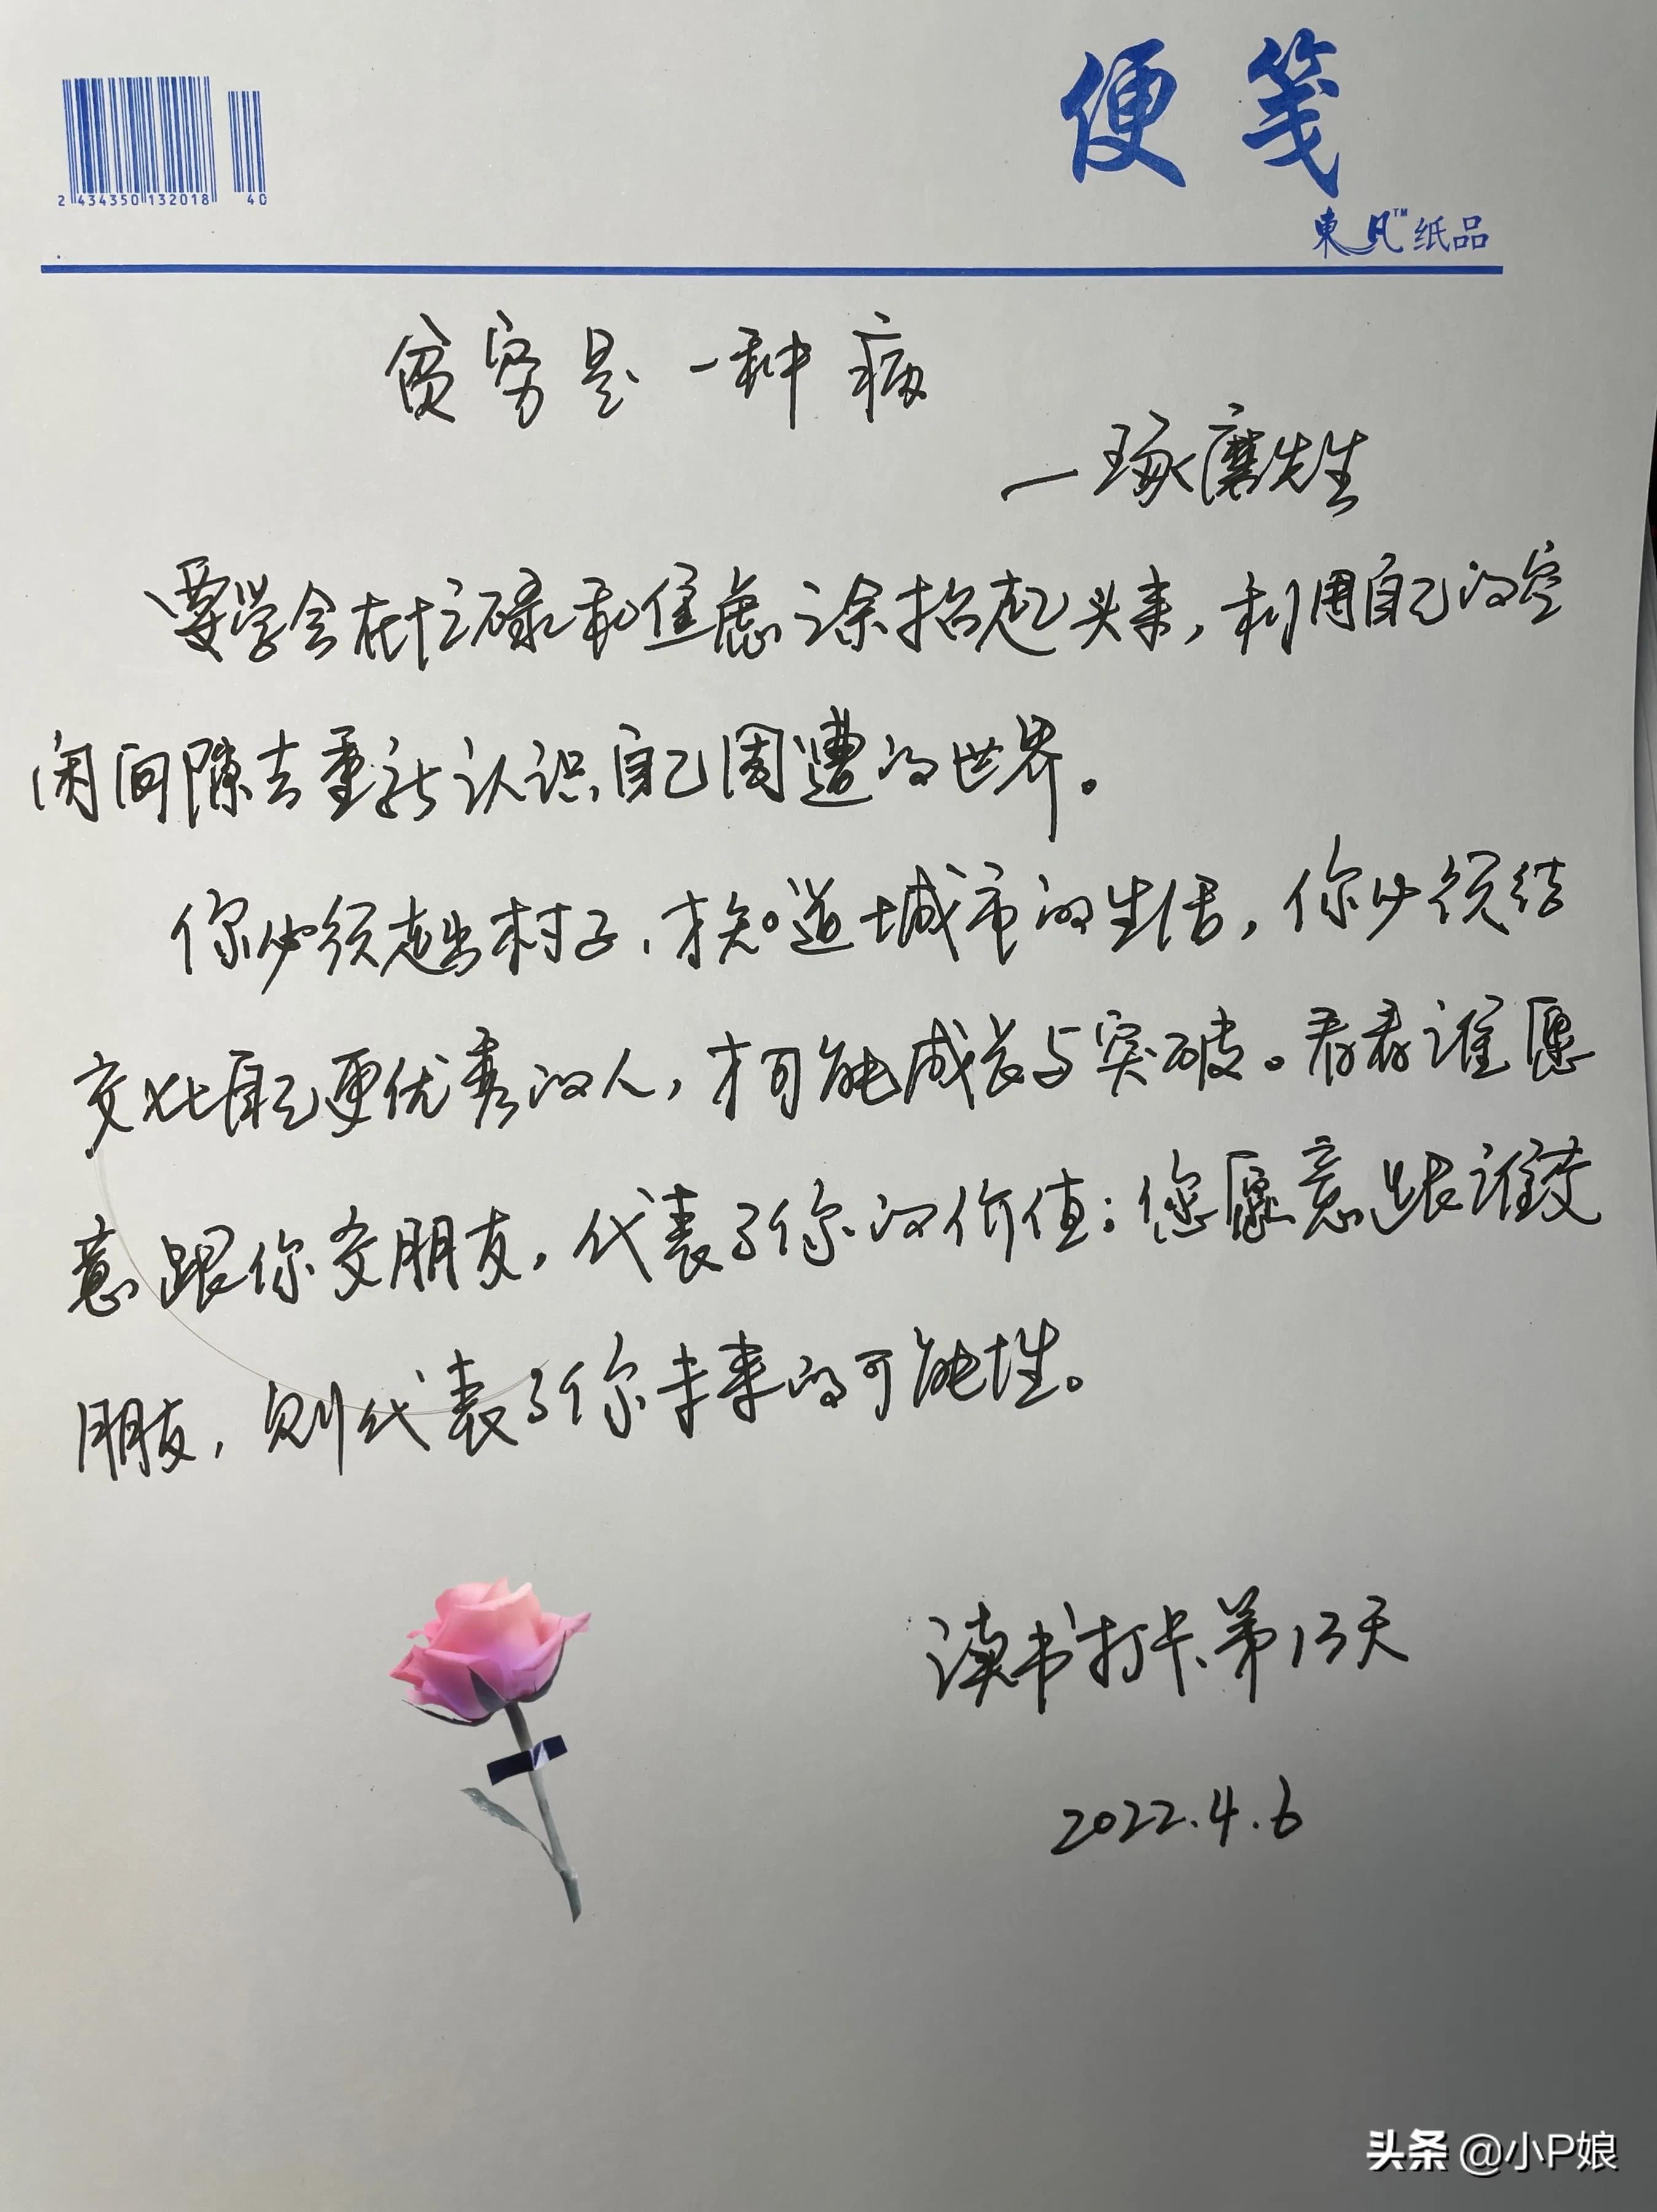 便笺
2 434350 132018 40
東凡™纸品
贫穷是一种病
一琢磨先生
要学会在忙碌和焦虑之余抬起头来，利用自己的空
闲间隙去重新认识自己周遭的世界。
你必须走出村子，才知道城市的生活，你必须结
交比自己更优秀的人，才可能成长与突破。看看谁愿
意跟你交朋友，代表了你的价值；您愿意跟谁交
朋友，则代表了你未来的可能性。
读书打卡第13天
2022.4.6
头条 @小P娘